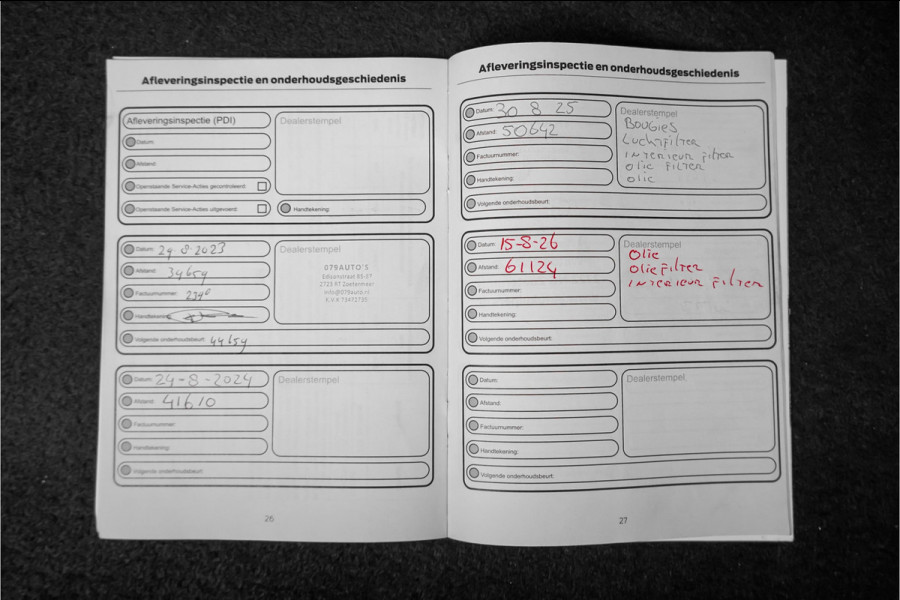 Afleveringsinspectie en onderhoudsgeschiedenis
Afleveringsinspectie (PDI)
Datum:
Afstand:
Openstaande Service-Acties gecontroleerd:
Openstaande Service-Acties uitgevoerd:
Dealerstempel
Handtekening:
Datum: 29-8-2023
Afstand: 34654
Factuurnummer:
Handtekening:
Volgende onderhoudsbeurt: 44654
Dealerstempel
079AUTO'S
2723 RT Zoetermeer
info@079auto.nl
K.V.K 73472735
Datum: 24-8-2024
Afstand: 41610
Factuurnummer:
Handtekening:
Volgende onderhoudsbeurt:
Dealerstempel
26
Afleveringsinspectie en onderhoudsgeschiedenis
Datum: 30 8 25
Afstand: 50642
Factuurnummer:
Handtekening:
Volgende onderhoudsbeurt:
Dealerstempel
BOUGIES
LUCHTFILTER
INTERIEUR FILTER
OLIE FILTER
OLIE
Datum: 15-8-26
Afstand: 61124
Factuurnummer:
Handtekening:
Volgende onderhoudsbeurt:
Dealerstempel
OLIE
OLIE FILTER
INTERIEUR FILTER
Datum:
Afstand:
Factuurnummer:
Handtekening:
Volgende onderhoudsbeurt:
Dealerstempel
27